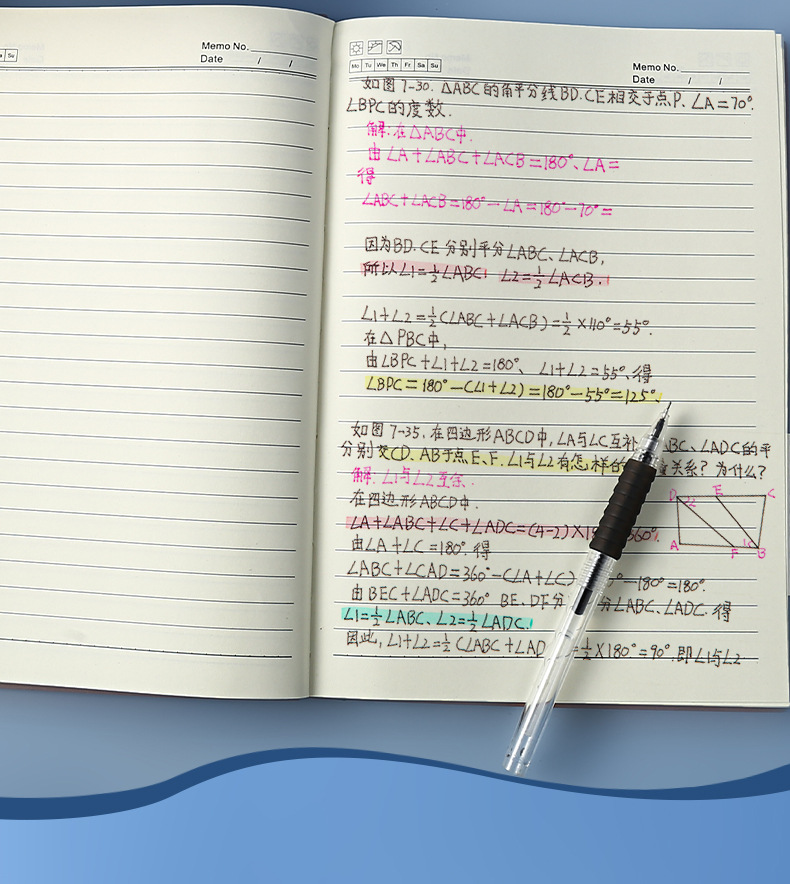 Su
Memo No.
Date / /
Mo Tu We Th Fr Sa Su
Memo No.
Date / /
如图7-30.△ABC的角平分线BD.CE相交于点P.∠A=70°.
∠BPC的度数.
解:在△ABC中.
由∠A+∠ABC+∠ACB=180°、∠A=
得
∠ABC+∠ACB=180°-∠A=180°-70°=
因为BD.CE分别平分∠ABC、∠ACB,
所以∠1=½∠ABC ∠2=½∠ACB.
∠1+∠2=½(∠ABC+∠ACB)=½×110°=55°.
在△PBC中,
由∠BPC+∠1+∠2=180°、∠1+∠2=55°、得
∠BPC=180°-(∠1+∠2)=180°-55°=125°.
如图7-35.在四边形ABCD中,∠A与∠C互补 ABC、∠ADC的平
分别交CD.AB于点E、F.∠1与∠2有怎样的 关系?为什么?
解:∠1与∠2互余.
在四边形ABCD中.
∠A+∠ABC+∠C+∠ADC=(4-2)×18 360°.
由∠A+∠C=180°.得
∠ABC+∠CAD=360°-(∠A+∠C) °-180°=180°.
由BEC+∠ADC=360° BE、DF分 分∠ABC、∠ADC.得
∠1=½∠ABC、∠2=½∠ADC.
因此,∠1+∠2=½(∠ABC+∠AD =½×180°=90°.即∠1与∠2
D E C
2
A F 1 B